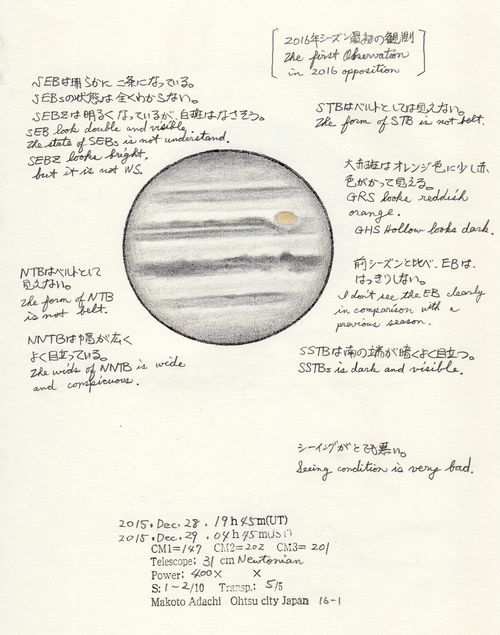 2016年シーズン最初の観測
The first Observation
in 2016 opposition
SEBは明らかに二条になっている。
SEBsの状態は全くわからない。
SEBZは明るくなっているが、白斑はなさそう。
SEB look double and visible.
The state of SEBs is not understand.
SEBZ looks bright.
but it is not WS.
STBはベルトとしては見えない。
The form of STB is not belt.
大赤斑はオレンジ色に少し赤
色がかって見える。
GRS looks reddish
orange.
GHS Hollow looks dark.
NTBはベルトとして
見えない。
The form of NTB
is not belt.
前シーズンと比べ、EBは、
はっきりしない。
I don't see the EB clearly
in comparison with a
previous season.
NNTBは幅が広く
よく目立っている。
The wids of NNTB is wide
and conspicuous.
SSTBは南の端が暗くよく目立つ。
SSTBs is dark and visible.
シーイングがとても悪い。
Seeing condition is very bad.
2015. Dec. 28. 19h45m(UT)
2015. Dec. 29. 04h45m(JST)
CM1=147 CM2=202 CM3=201
Telescope: 31 cm Newtonian
Power: 400× ×
S: 1~2/10 Transp.: 5/5
Makoto Adachi Ohtsu city Japan 16-1